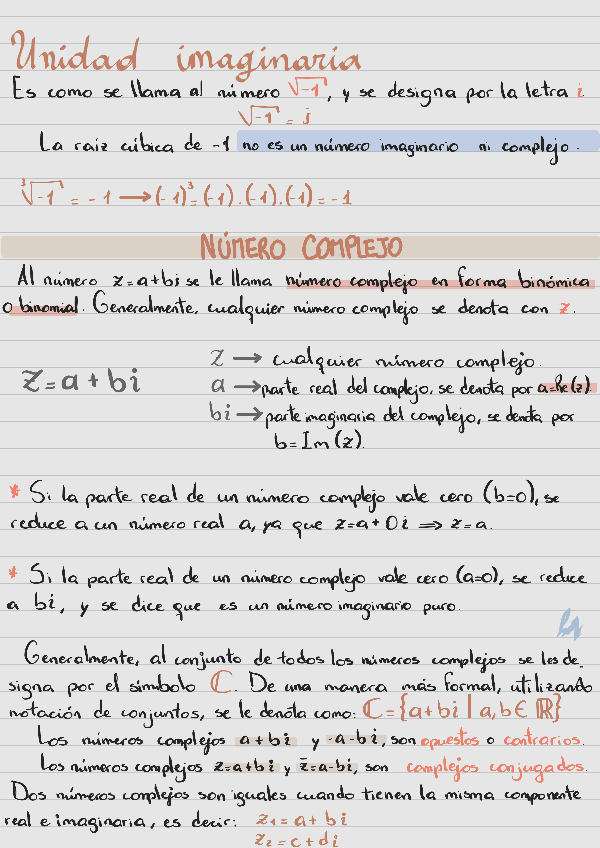 Unidad imaginaria
Es como se llama al número √-1, y se designa por la letra i
√-1 = i
La raíz cúbica de -1 no es un número imaginario ni complejo.
³√-1 = -1 → (-1)³ = (-1).(-1).(-1) = -1
NÚMERO COMPLEJO
Al número z=a+bi se le llama número complejo en forma binómica
o binomial. Generalmente, cualquier número complejo se denota con z.
z → cualquier número complejo.
z = a + bi
a → parte real del complejo, se denota por a=Re(z).
bi → parte imaginaria del complejo, se denota por
b = Im(z).
* Si la parte real de un número complejo vale cero (b=0), se
reduce a un número real a, ya que z=a+0i ⟹ z=a.
* Si la parte real de un número complejo vale cero (a=0), se reduce
a bi, y se dice que es un número imaginario puro.
Generalmente, al conjunto de todos los números complejos se les de-
signa por el símbolo ℂ. De una manera más formal, utilizando
notación de conjuntos, se le denota como: ℂ={a+bi | a,b∈ ℝ}
Los números complejos a+bi y -a-bi, son opuestos o contrarios.
Los números complejos z=a+bi y z̄=a-bi, son complejos conjugados.
Dos números complejos son iguales cuando tienen la misma componente
real e imaginaria, es decir: z₁ = a + bi
z₂ = c + di